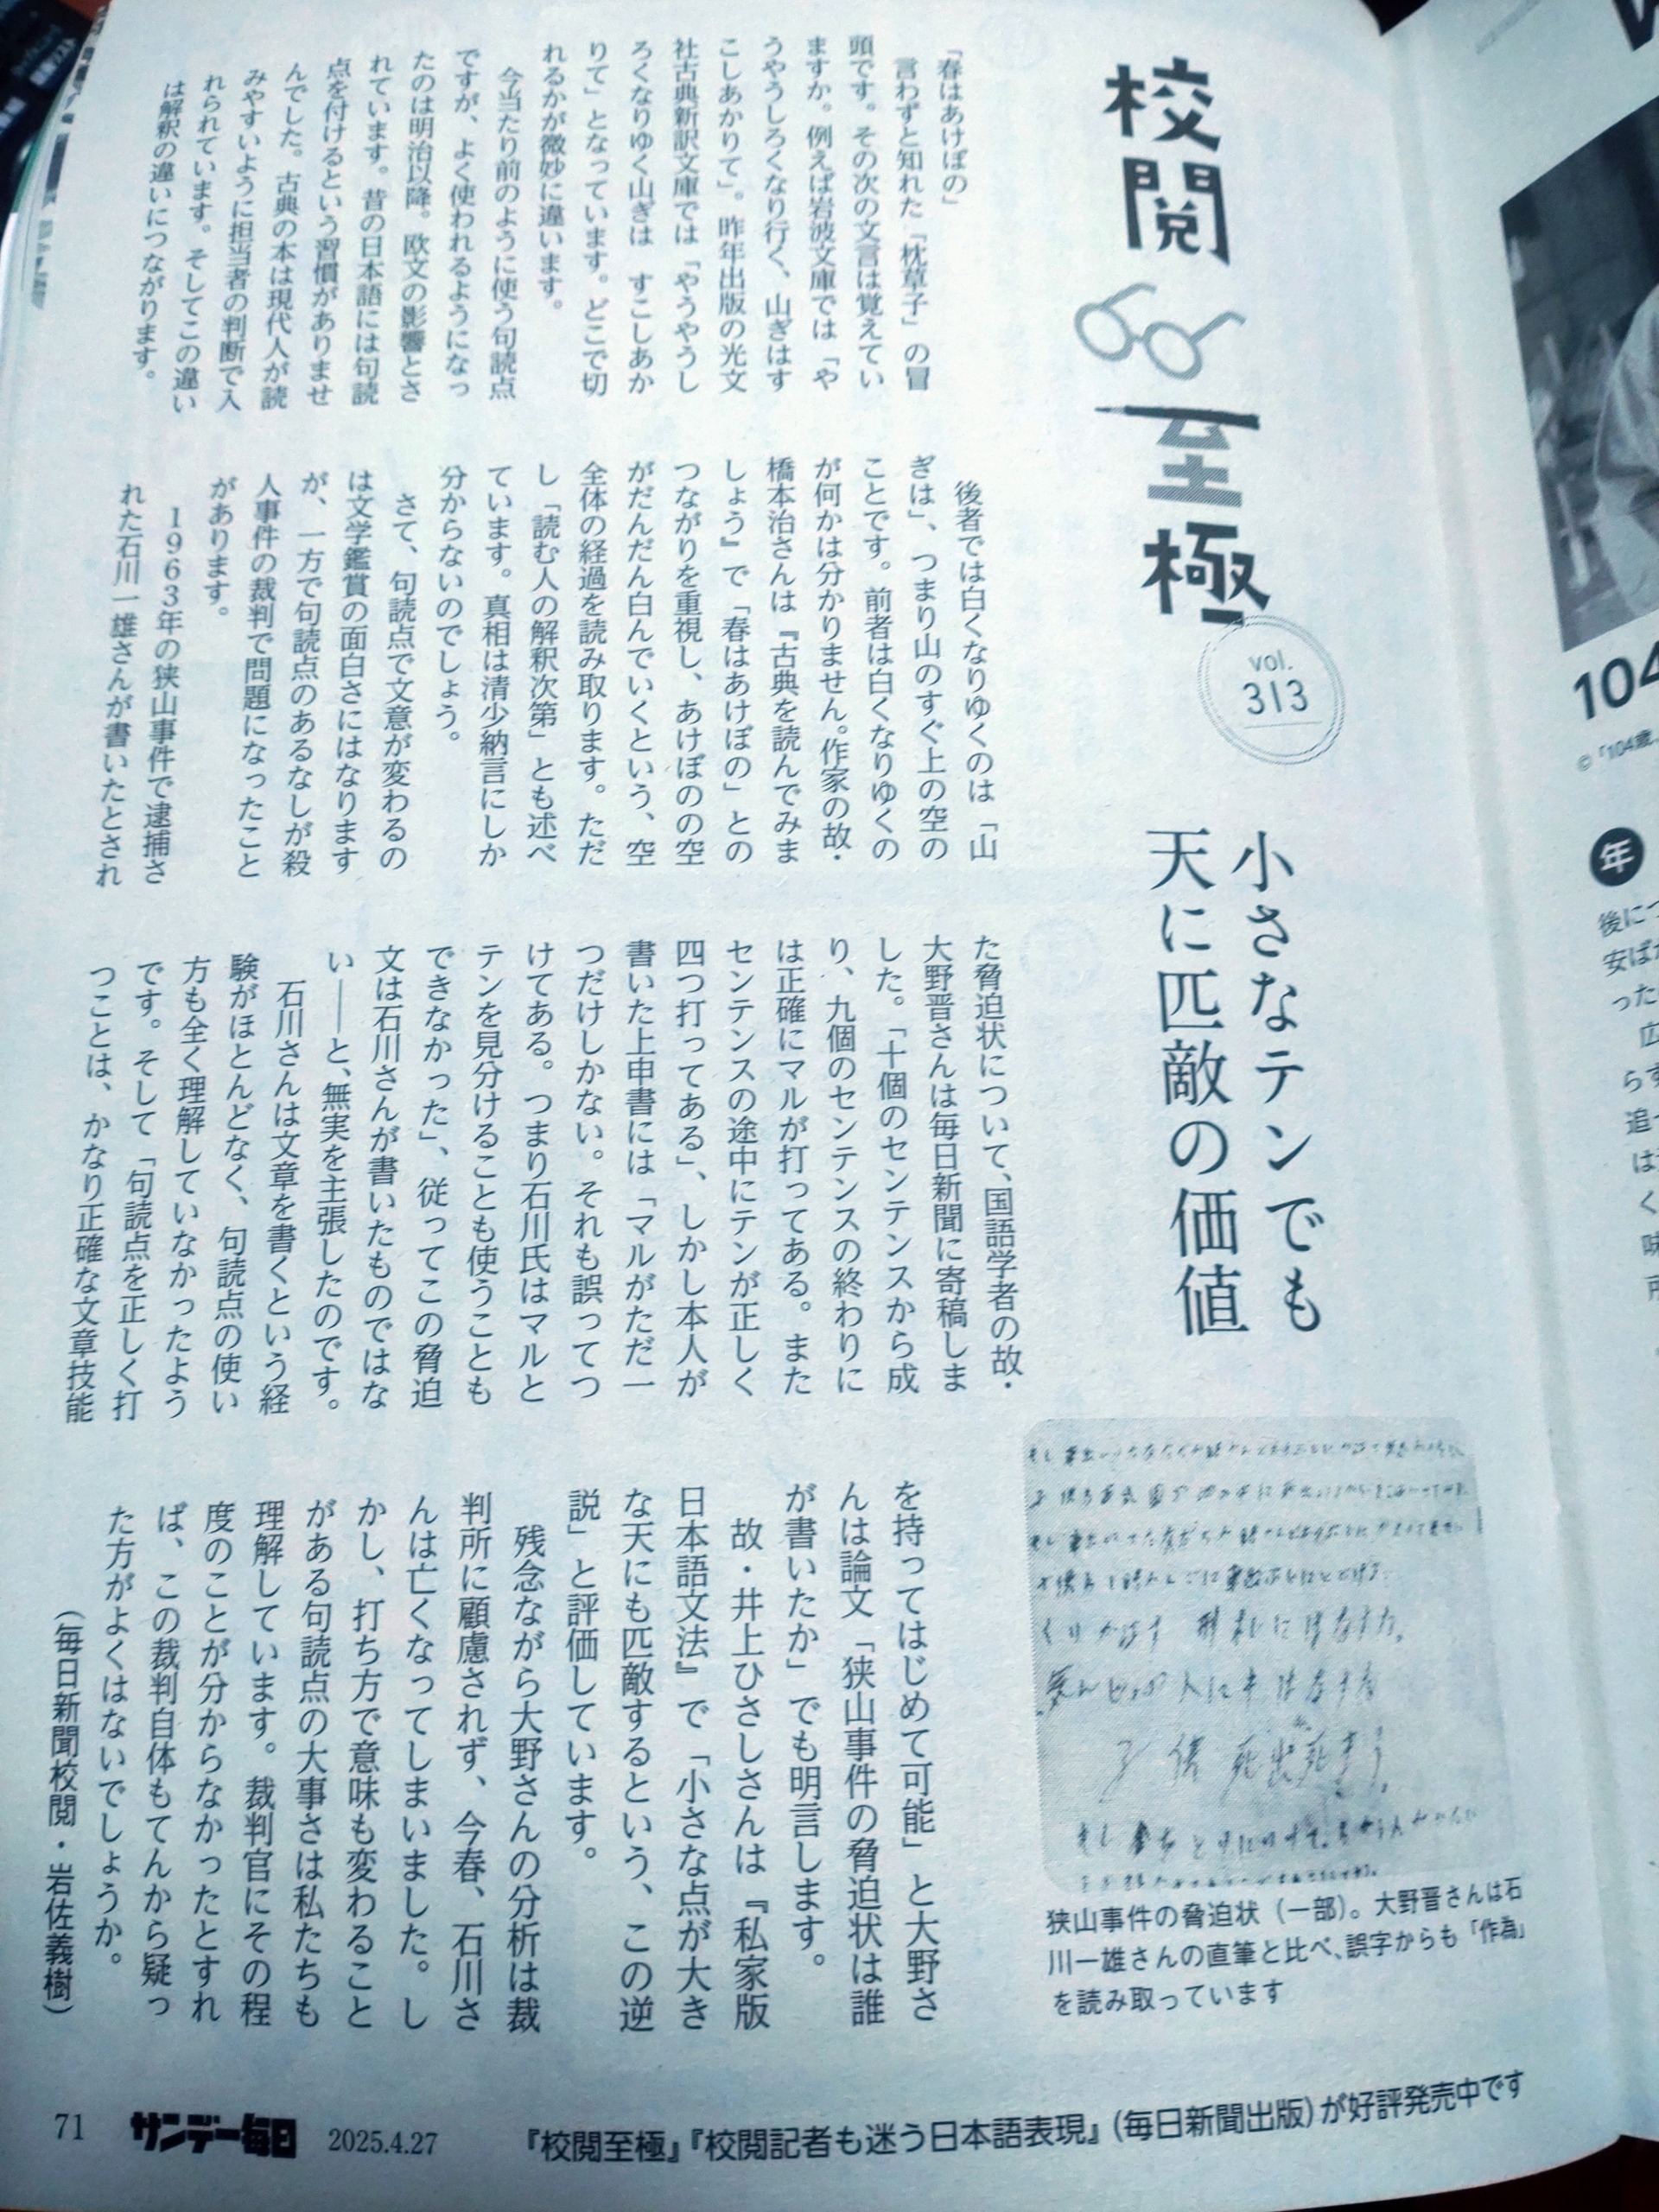 校閲至極
vol.
313
小さなテンでも
天に匹敵の価値
「春はあけぼの」
言わずと知れた「枕草子」の冒
頭です。その次の文言は覚えてい
ますか。例えば岩波文庫では「や
うやうしろくなり行く、山ぎはす
こしあかりて」。昨年出版の光文
社古典新訳文庫では「やうやうし
ろくなりゆく山ぎは　すこしあか
りて」となっています。どこで切
れるかが微妙に違います。
今当たり前のように使う句読点
ですが、よく使われるようになっ
たのは明治以降。欧文の影響とさ
れています。昔の日本語には句読
点を付けるという習慣がありませ
んでした。古典の本は現代人が読
みやすいように担当者の判断で入
れられています。そしてこの違い
は解釈の違いにつながります。
後者では白くなりゆくのは「山
ぎは」、つまり山のすぐ上の空の
ことです。前者は白くなりゆくの
が何かは分かりません。作家の故・
橋本治さんは『古典を読んでみま
しょう』で「春はあけぼの」との
つながりを重視し、あけぼのの空
がだんだん白んでいくという、空
全体の経過を読み取ります。ただ
し「読む人の解釈次第」とも述べ
ています。真相は清少納言にしか
分からないのでしょう。
さて、句読点で文意が変わるの
は文学鑑賞の面白さにはなります
が、一方で句読点のあるなしが殺
人事件の裁判で問題になったこと
があります。
1963年の狭山事件で逮捕さ
れた石川一雄さんが書いたとされ
た脅迫状について、国語学者の故・
大野晋さんは毎日新聞に寄稿しま
した。「十個のセンテンスから成
り、九個のセンテンスの終わりに
は正確にマルが打ってある。また
センテンスの途中にテンが正しく
四つ打ってある」、しかし本人が
書いた上申書には「マルがただ一
つだけしかない。それも誤ってつ
けてある。つまり石川氏はマルと
テンを見分けることも使うことも
できなかった」、従ってこの脅迫
文は石川さんが書いたものではな
い――と、無実を主張したのです。
石川さんは文章を書くという経
験がほとんどなく、句読点の使い
方も全く理解していなかったよう
です。そして「句読点を正しく打
つことは、かなり正確な文章技能
を持ってはじめて可能」と大野さ
んは論文「狭山事件の脅迫状は誰
が書いたか」でも明言します。
故・井上ひさしさんは『私家版
日本語文法』で「小さな点が大き
な天にも匹敵するという、この逆
説」と評価しています。
残念ながら大野さんの分析は裁
判所に顧慮されず、今春、石川さ
んは亡くなってしまいました。し
かし、打ち方で意味も変わること
がある句読点の大事さは私たちも
理解しています。裁判官にその程
度のことが分からなかったとすれ
ば、この裁判自体もてんから疑っ
た方がよくはないでしょうか。
（毎日新聞校閲・岩佐義樹）
狭山事件の脅迫状（一部）。大野晋さんは石
川一雄さんの直筆と比べ、誤字からも「作為」
を読み取っています
71
サンデー毎日
2025.4.27
『校閲至極』『校閲記者も迷う日本語表現』（毎日新聞出版）が好評発売中です
104
©「104歳、
年